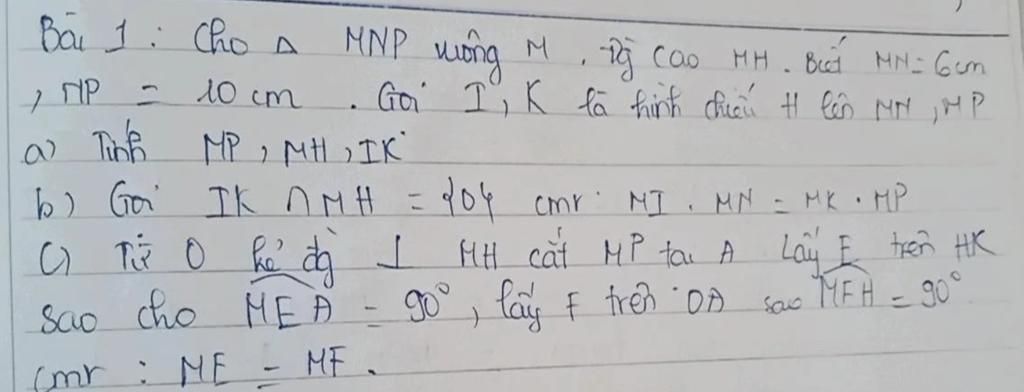 Bài 1 : Cho Δ MNP vuông M . Đg cao MH . Biết MN = 6cm
, NP = 10 cm . Gọi I , K là hình chiếu H lên MN , MP
a) Tính MP , MH , IK
b) Gọi IK ∩ MH = {O} cmr : MI . MN = MK . MP
c) Từ O kẻ đg ⊥ MH cắt MP tại A Lấy E trên HK
sao cho MEA = 90° , lấy F trên OA sao MFH = 90°
cmr : ME = MF .